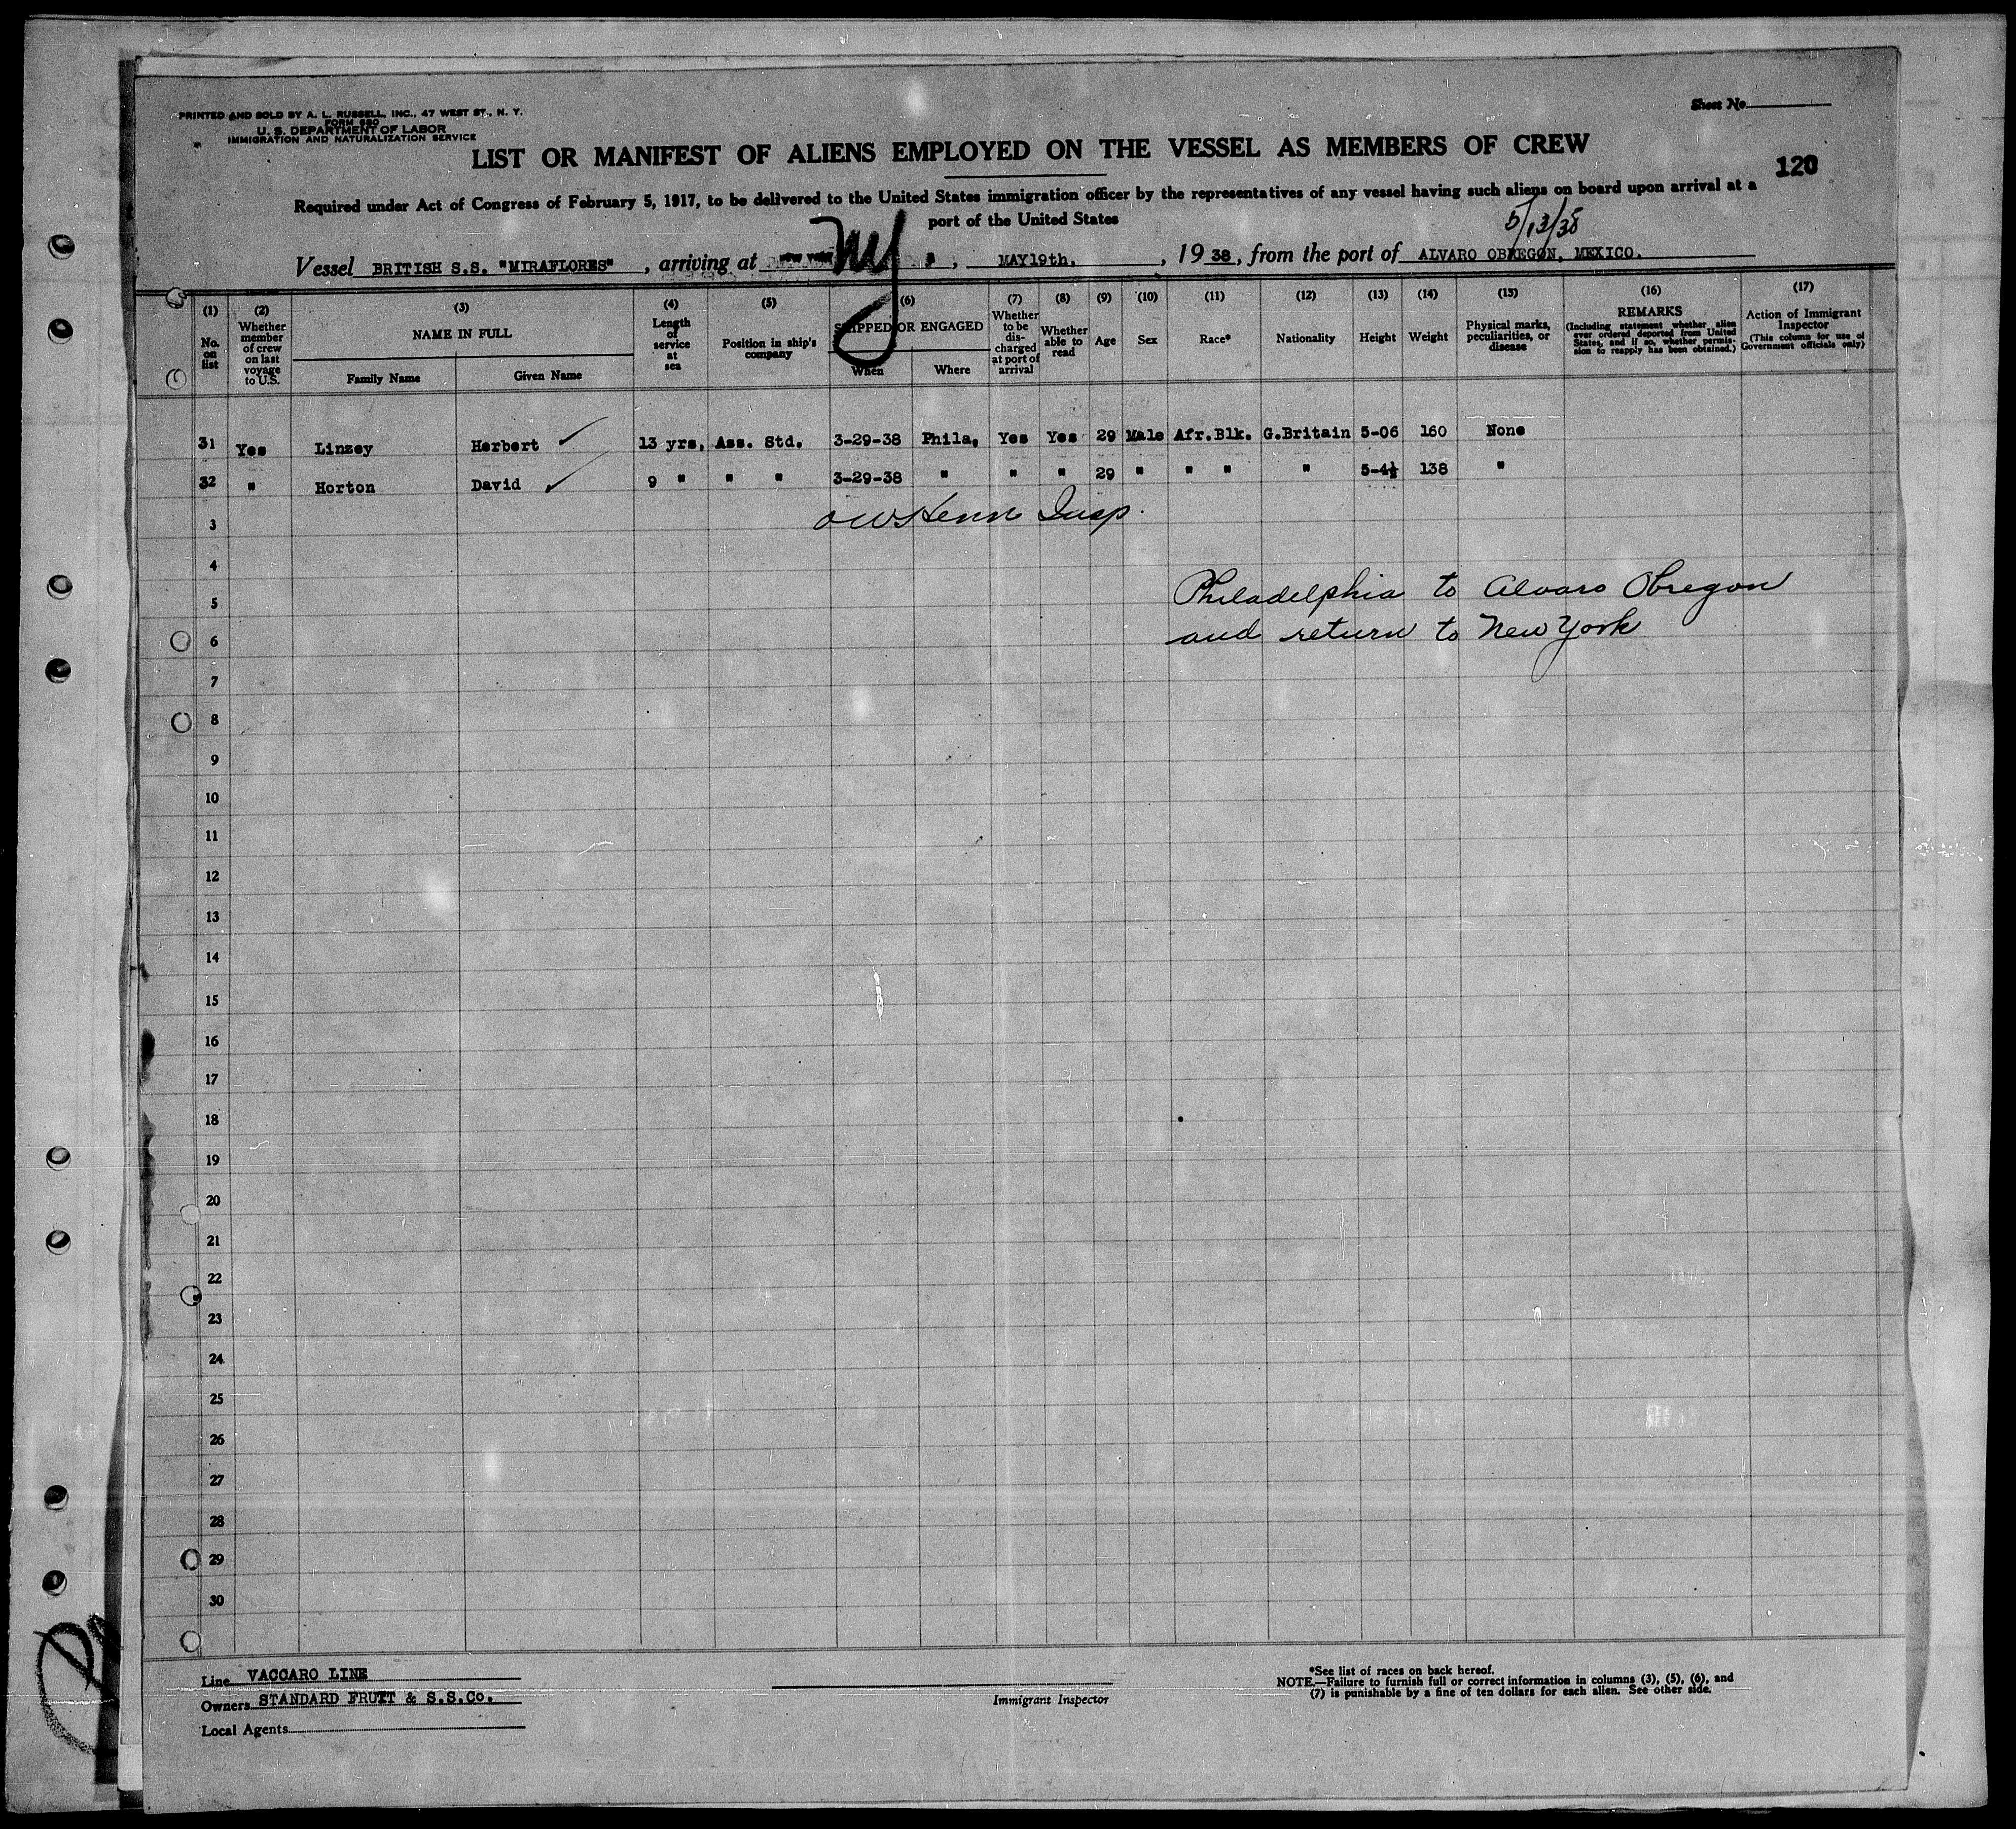 PRINTED AND SOLD BY A. L. RUSSELL, INC., 47 WEST ST., N. Y.
FORM 680
U. S. DEPARTMENT OF LABOR
IMMIGRATION AND NATURALIZATION SERVICE
Sheet No.
LIST OR MANIFEST OF ALIENS EMPLOYED ON THE VESSEL AS MEMBERS OF CREW
120
Required under Act of Congress of February 5, 1917, to be delivered to the United States immigration officer by the representatives of any vessel having such aliens on board upon arrival at a
port of the United States
5/13/38
Vessel BRITISH S.S. "MIRAFLORES", arriving at NEW YORK NY, MAY19th, 1938, from the port of ALVARO OBREGON, MEXICO.
(1) No. on list
(2) Whether member of crew on last voyage to U.S.
(3) NAME IN FULL Family Name Given Name
(4) Length of service at sea
(5) Position in ship's company
(6) SHIPPED OR ENGAGED When Where
(7) Whether to be discharged at port of arrival
(8) Whether able to read
(9) Age
(10) Sex
(11) Race*
(12) Nationality
(13) Height
(14) Weight
(15) Physical marks, peculiarities, or disease
(16) REMARKS (Including statement whether alien ever ordered deported from United States, and if so, whether permission to reapply has been obtained.)
(17) Action of Immigrant Inspector (This column for use of Government officials only)
31 Yes Linzey Herbert ✓ 13 yrs, Ass. Std. 3-29-38 Phila, Yes Yes 29 Male Afr.Blk. G.Britain 5-06 160 None
32 " Horton David ✓ 9 " " " 3-29-38 " " " 29 " " " " 5-4½ 138 "
3 Insp.
4
Philadelphia to Alvaro Obregon
5
and return to New York
6
7
8
9
10
11
12
13
14
15
16
17
18
19
20
21
22
23
24
25
26
27
28
29
30
Line VACCARO LINE
Owners STANDARD FRUIT & S.S.Co.
Local Agents
Immigrant Inspector
*See list of races on back hereof.
NOTE.—Failure to furnish full or correct information in columns (3), (5), (6), and
(7) is punishable by a fine of ten dollars for each alien. See other side.